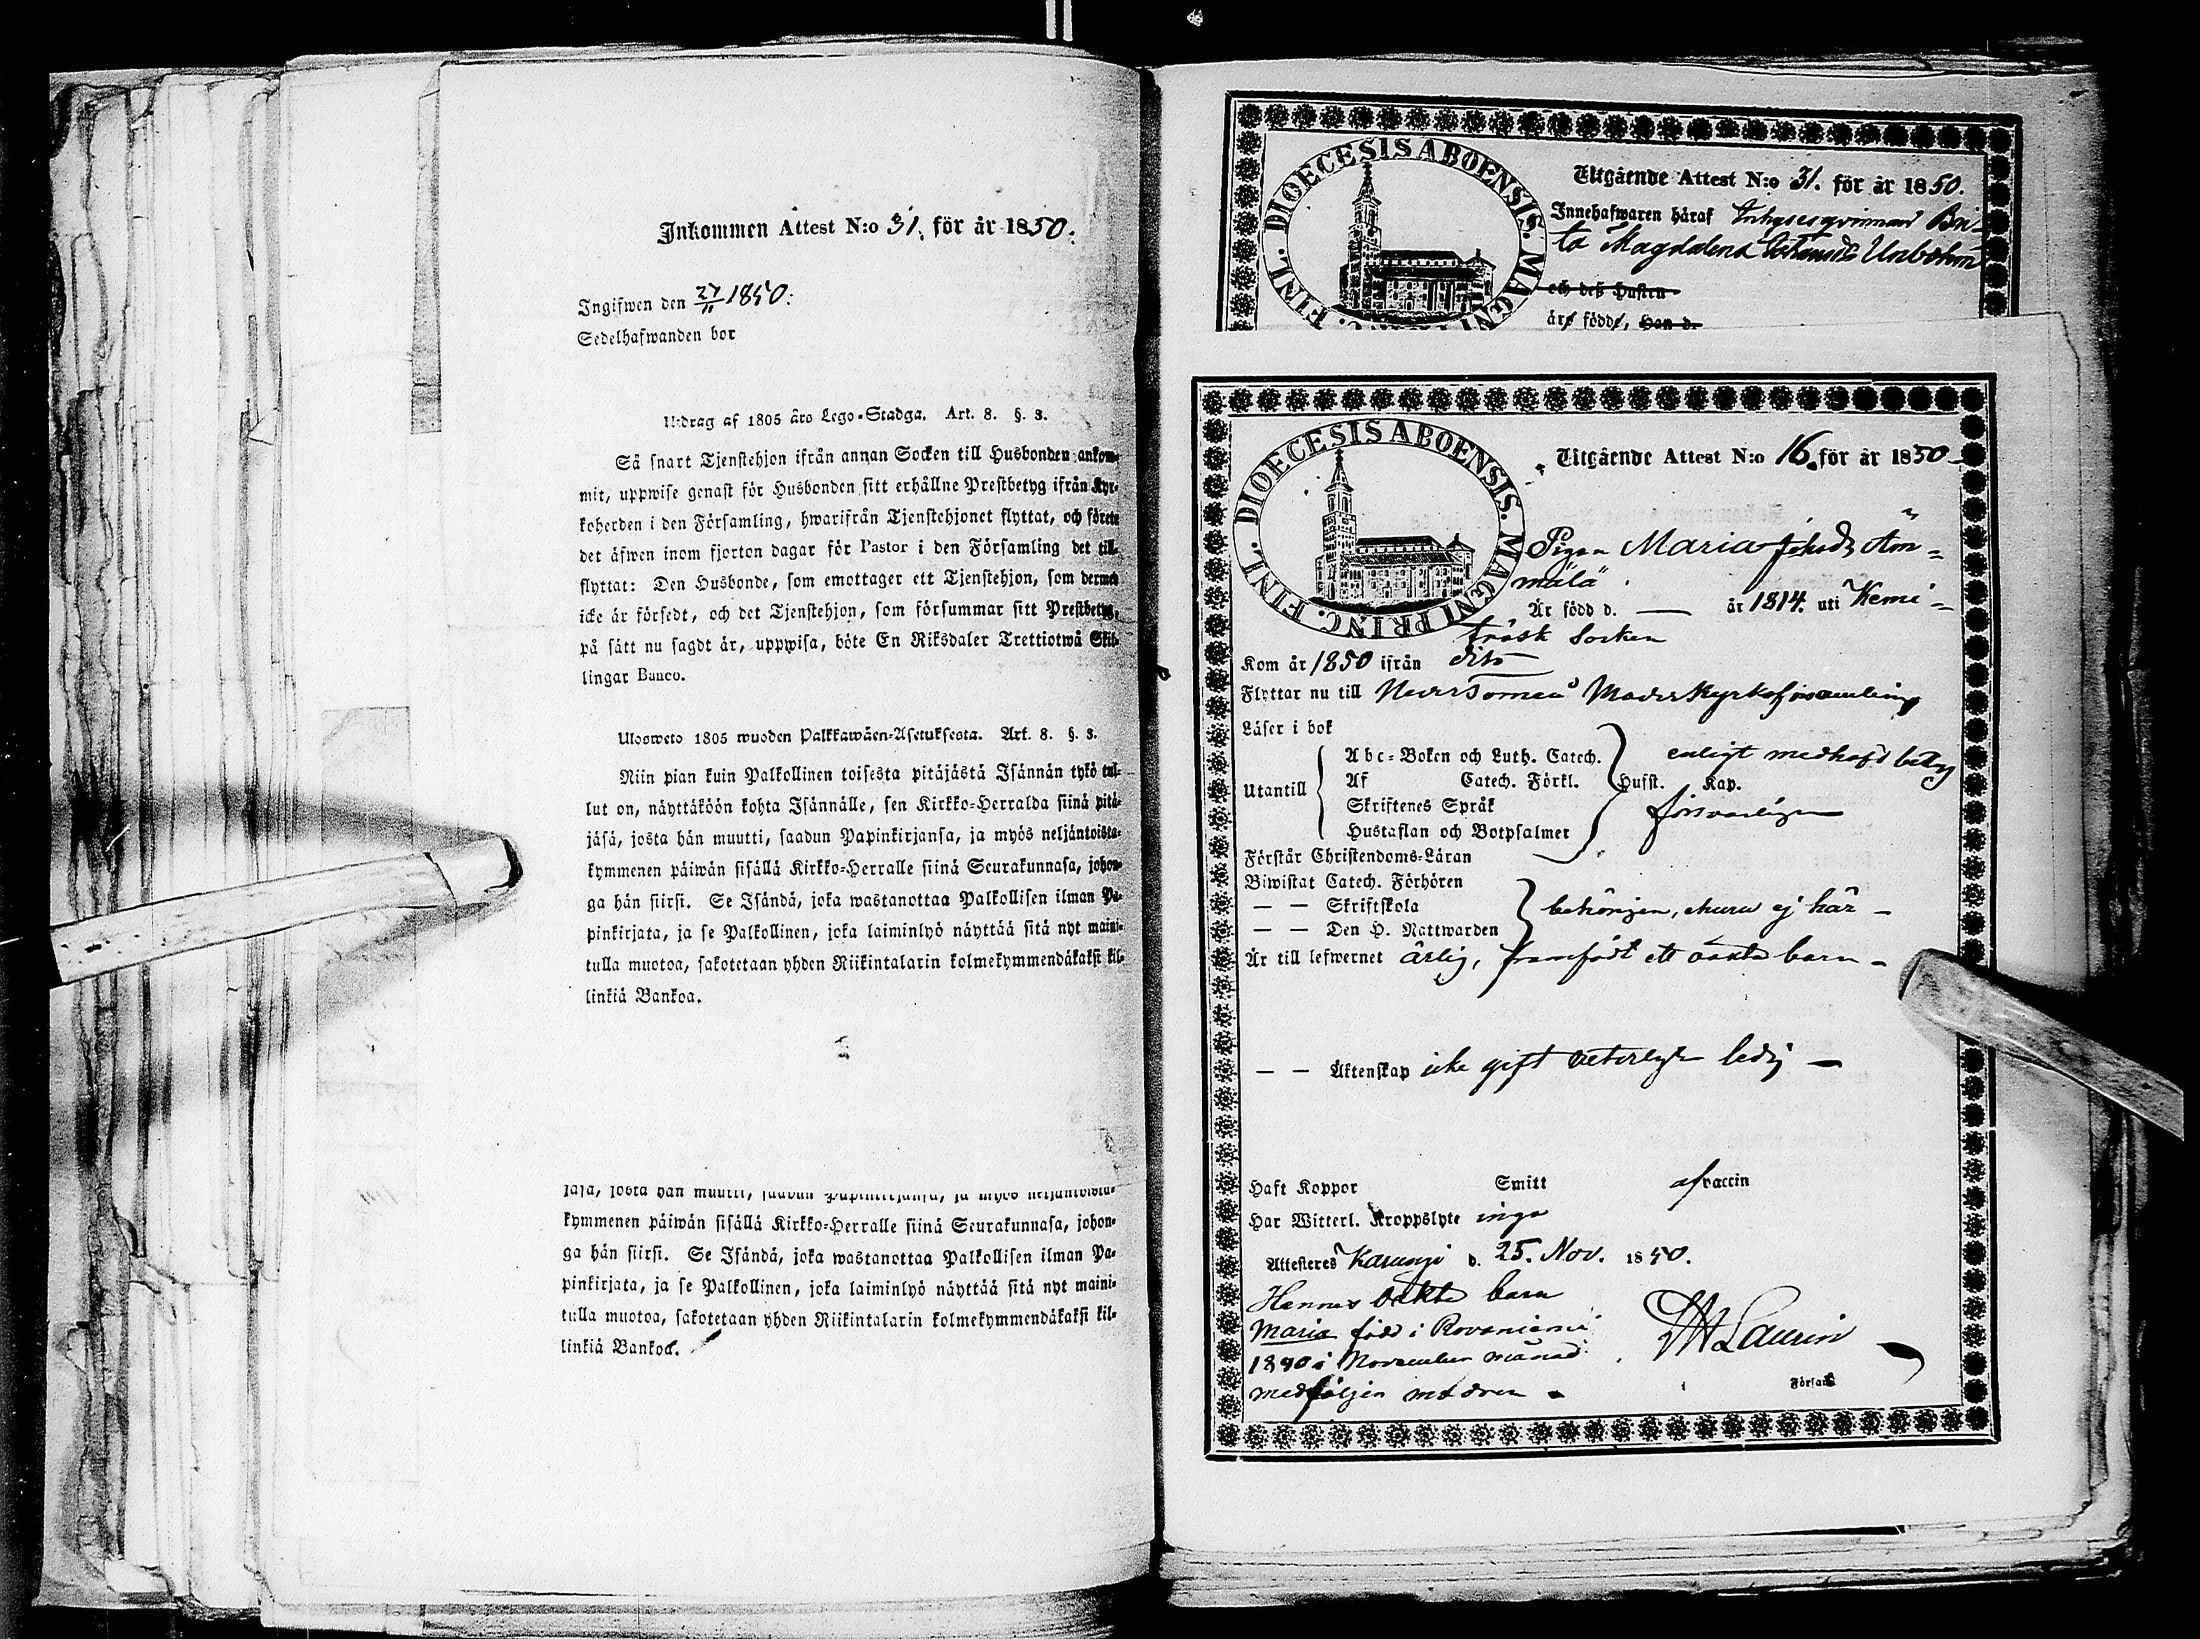 Inkommen Attest N:o 31. för år 1850.
Ingifwen den 27/11 1850.
Sedelhafwanden bor
Utdrag af 1805 års Lego-Stadga. Art. 8. §. 3.
Så snart Tjenstehjon ifrån annan Socken till Husbonden ankom-
mit, uppwise genast för Husbonden sitt erhållne Prestbetyg ifrån Kyr-
koherden i den Församling, hwarifrån Tjenstehjonet flyttat, och förete
det äfwen inom fjorton dagar för Pastor i den Församling det till-
flyttat: Den Husbonde, som emottager ett Tjenstehjon, som dermed
icke är försedt, och det Tjenstehjon, som försummar sitt Prestbetyg,
på sätt nu sagdt är, uppwisa, böte En Riksdaler Trettiotwå Skil-
lingar Banco.
Ulosweto 1805 wuoden Palkkawäen-Asetuksesta. Art. 8. §. 3.
Niin pian kuin Palkollinen toisesta pitäjästä Isännän tykö tul-
lut on, näyttäköön kohta Isännälle, sen Kirkko-Herralda siinä pitä-
jäsä, josta hän muutti, saadun Papinkirjansa, ja myös neljäntoista-
kymmenen päiwän sisällä Kirkko-Herralle siinä Seurakunnasa, johon-
ga hän siirsi. Se Isändä, joka wastanottaa Palkollisen ilman Pa-
pinkirjata, ja se Palkollinen, joka laiminlyö näyttää sitä nyt maini-
tulla muotoa, sakotetaan yhden Riikintalarin kolmekymmendäkaksi kil-
linkiä Bankoa.
jäsä, josta hän muutti, saadun Papinkirjansa, ja myös neljäntoista-
kymmenen päiwän sisällä Kirkko-Herralle siinä Seurakunnasa, johon-
ga hän siirsi. Se Isändä, joka wastanottaa Palkollisen ilman Pa-
pinkirjata, ja se Palkollinen, joka laiminlyö näyttää sitä nyt maini-
tulla muotoa, sakotetaan yhden Riikintalarin kolmekymmendäkaksi kil-
linkiä Bankoa.
DIOECESIS ABOENSIS. MAGNI PRINC. FINL.
Utgående Attest N:o 31. för år 1850.
Innehafwaren häraf Inhysesqvinnan Bri-
ta Magdalena
och deß Hustru
äre födde, Han d.
DIOECESIS ABOENSIS. MAGNI PRINC. FINL.
Utgående Attest N:o 16. för år 1850
Pigan Maria Johsdr Ön-
mälä
Är född d. — år 1814. uti Kemi-
träsk Socken
Kom år 1850 ifrån dito
Flyttar nu till Neder Torneå Moderkyrkoförsamling
Läser i bok
Utantill
Abc-Boken och Luth. Catech. enligt medhafd betyg
Af Catech. Förkl. Hufst. Kap.
Skriftenes Språk försvarligen
Hustaflan och Botpsalmer
Förstår Christendoms-Läran
Biwistat Catech. Förhören
— — Skriftskola behörigen, ehuru ej här —
— — Den H. Nattwarden
Är till lefwernet ärlig, framfödt ett oäkta barn —
— — Äktenskap icke gift veterligen ledig —
Haft Koppor Smitt af vaccin
Har Witterl. Kroppslyte inga
Attesteres Karungi d. 25. Nov. 1850.
Hennes oäkta barn
Maria född i Rovaniemi
1840 i November månad
medföljer modren
Laurin
Församl.